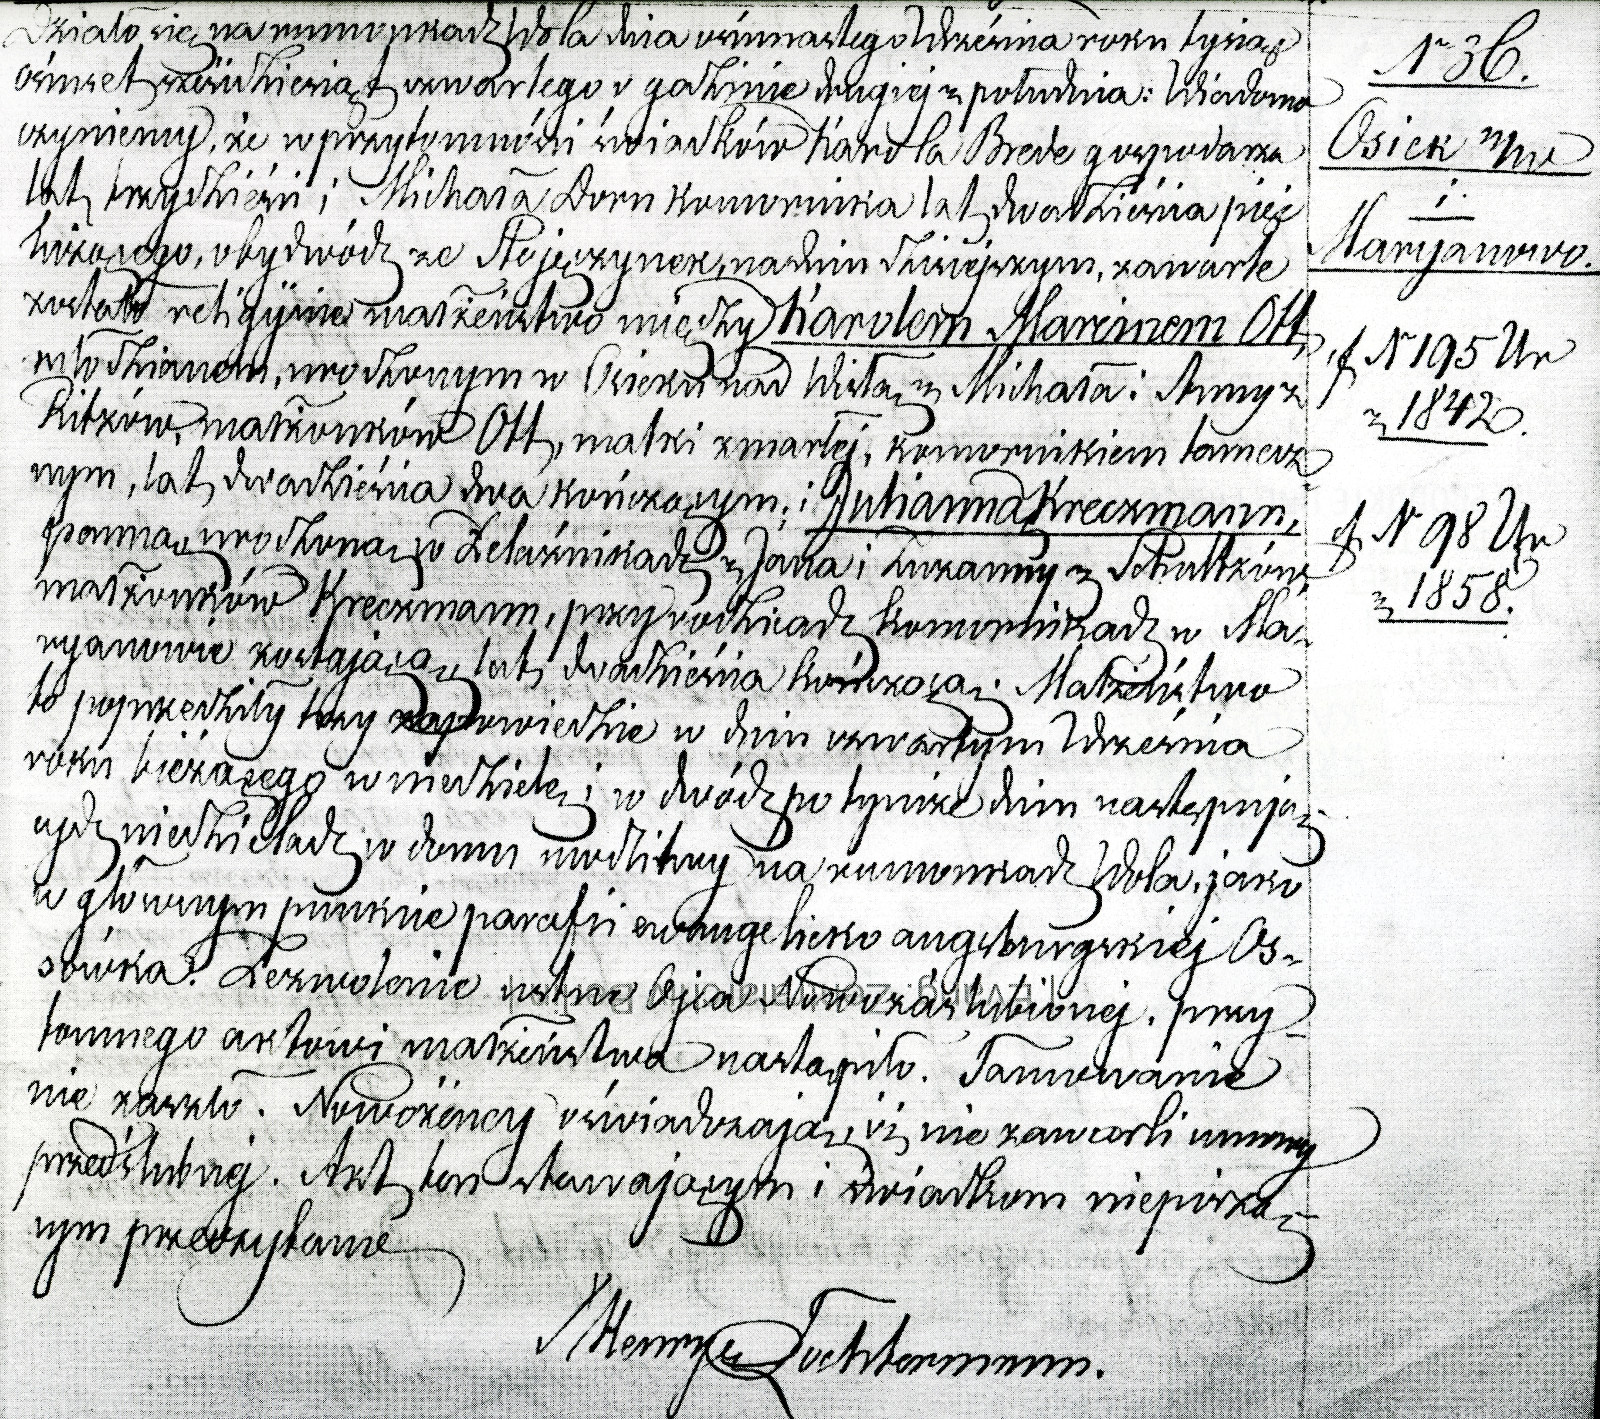 Działo się na rumunkach Wola dnia ośmnastego Września roku tysiąc
ośmset sześćdziesiąt czwartego o godzinie drugiej z południa: Wiadomo
czyniemy, że w przytomności świadków Karola Brede gospodarza
lat trzydzieści i Michała Dorn komornika lat dwadzieścia pięć
liczącego, obydwóch ze Stojęczynek, na dniu dzisiejszym, zawarte
zostało religijne małżeństwo między Karolem Marcinem Ott,
młodzianem, urodzonym w Osieku nad Wisłą z Michała i Anny z
Ritzów, małżonków Ott, matki zmarłej, komornikiem tamecz-
nym, lat dwadzieścia dwa kończącym; i Julianną Kreczmann,
panną, urodzoną w Żelaźnikach z Jana i Zuzanny z Schultzów,
małżonków Kreczmann, przy rodzicach komornikach w Ma-
ryanowie zostającą, lat dwadzieścia kończącą. Małżeństwo
to poprzedziły trzy zapowiedzie w dniu czwartym Września
roku bieżącego w niedzielę i w dwóch po tymże dniu następują-
cych niedzielach w domu modlitwy na rumonkach Wola, jako
w głównym punkcie parafii ewangelicko augsburgskiej Os-
sówka. Zezwolenie ustne Ojca Nowozaślubionej, przy-
tomnego aktowi małżeństwa nastąpiło. Tamowanie
nie zaszło. Nowożeńcy oświadczają, iż nie zawarli umowy
przedślubnej. Akt ten stawającym i świadkom niepiśmą-
nym przeczytane
X Henryk Tochtermann.
N 36.
Osiek n/w
i
Maryanowo.
cf N 195 Ur
z 1842.
cf N 98 Ur
z 1858.